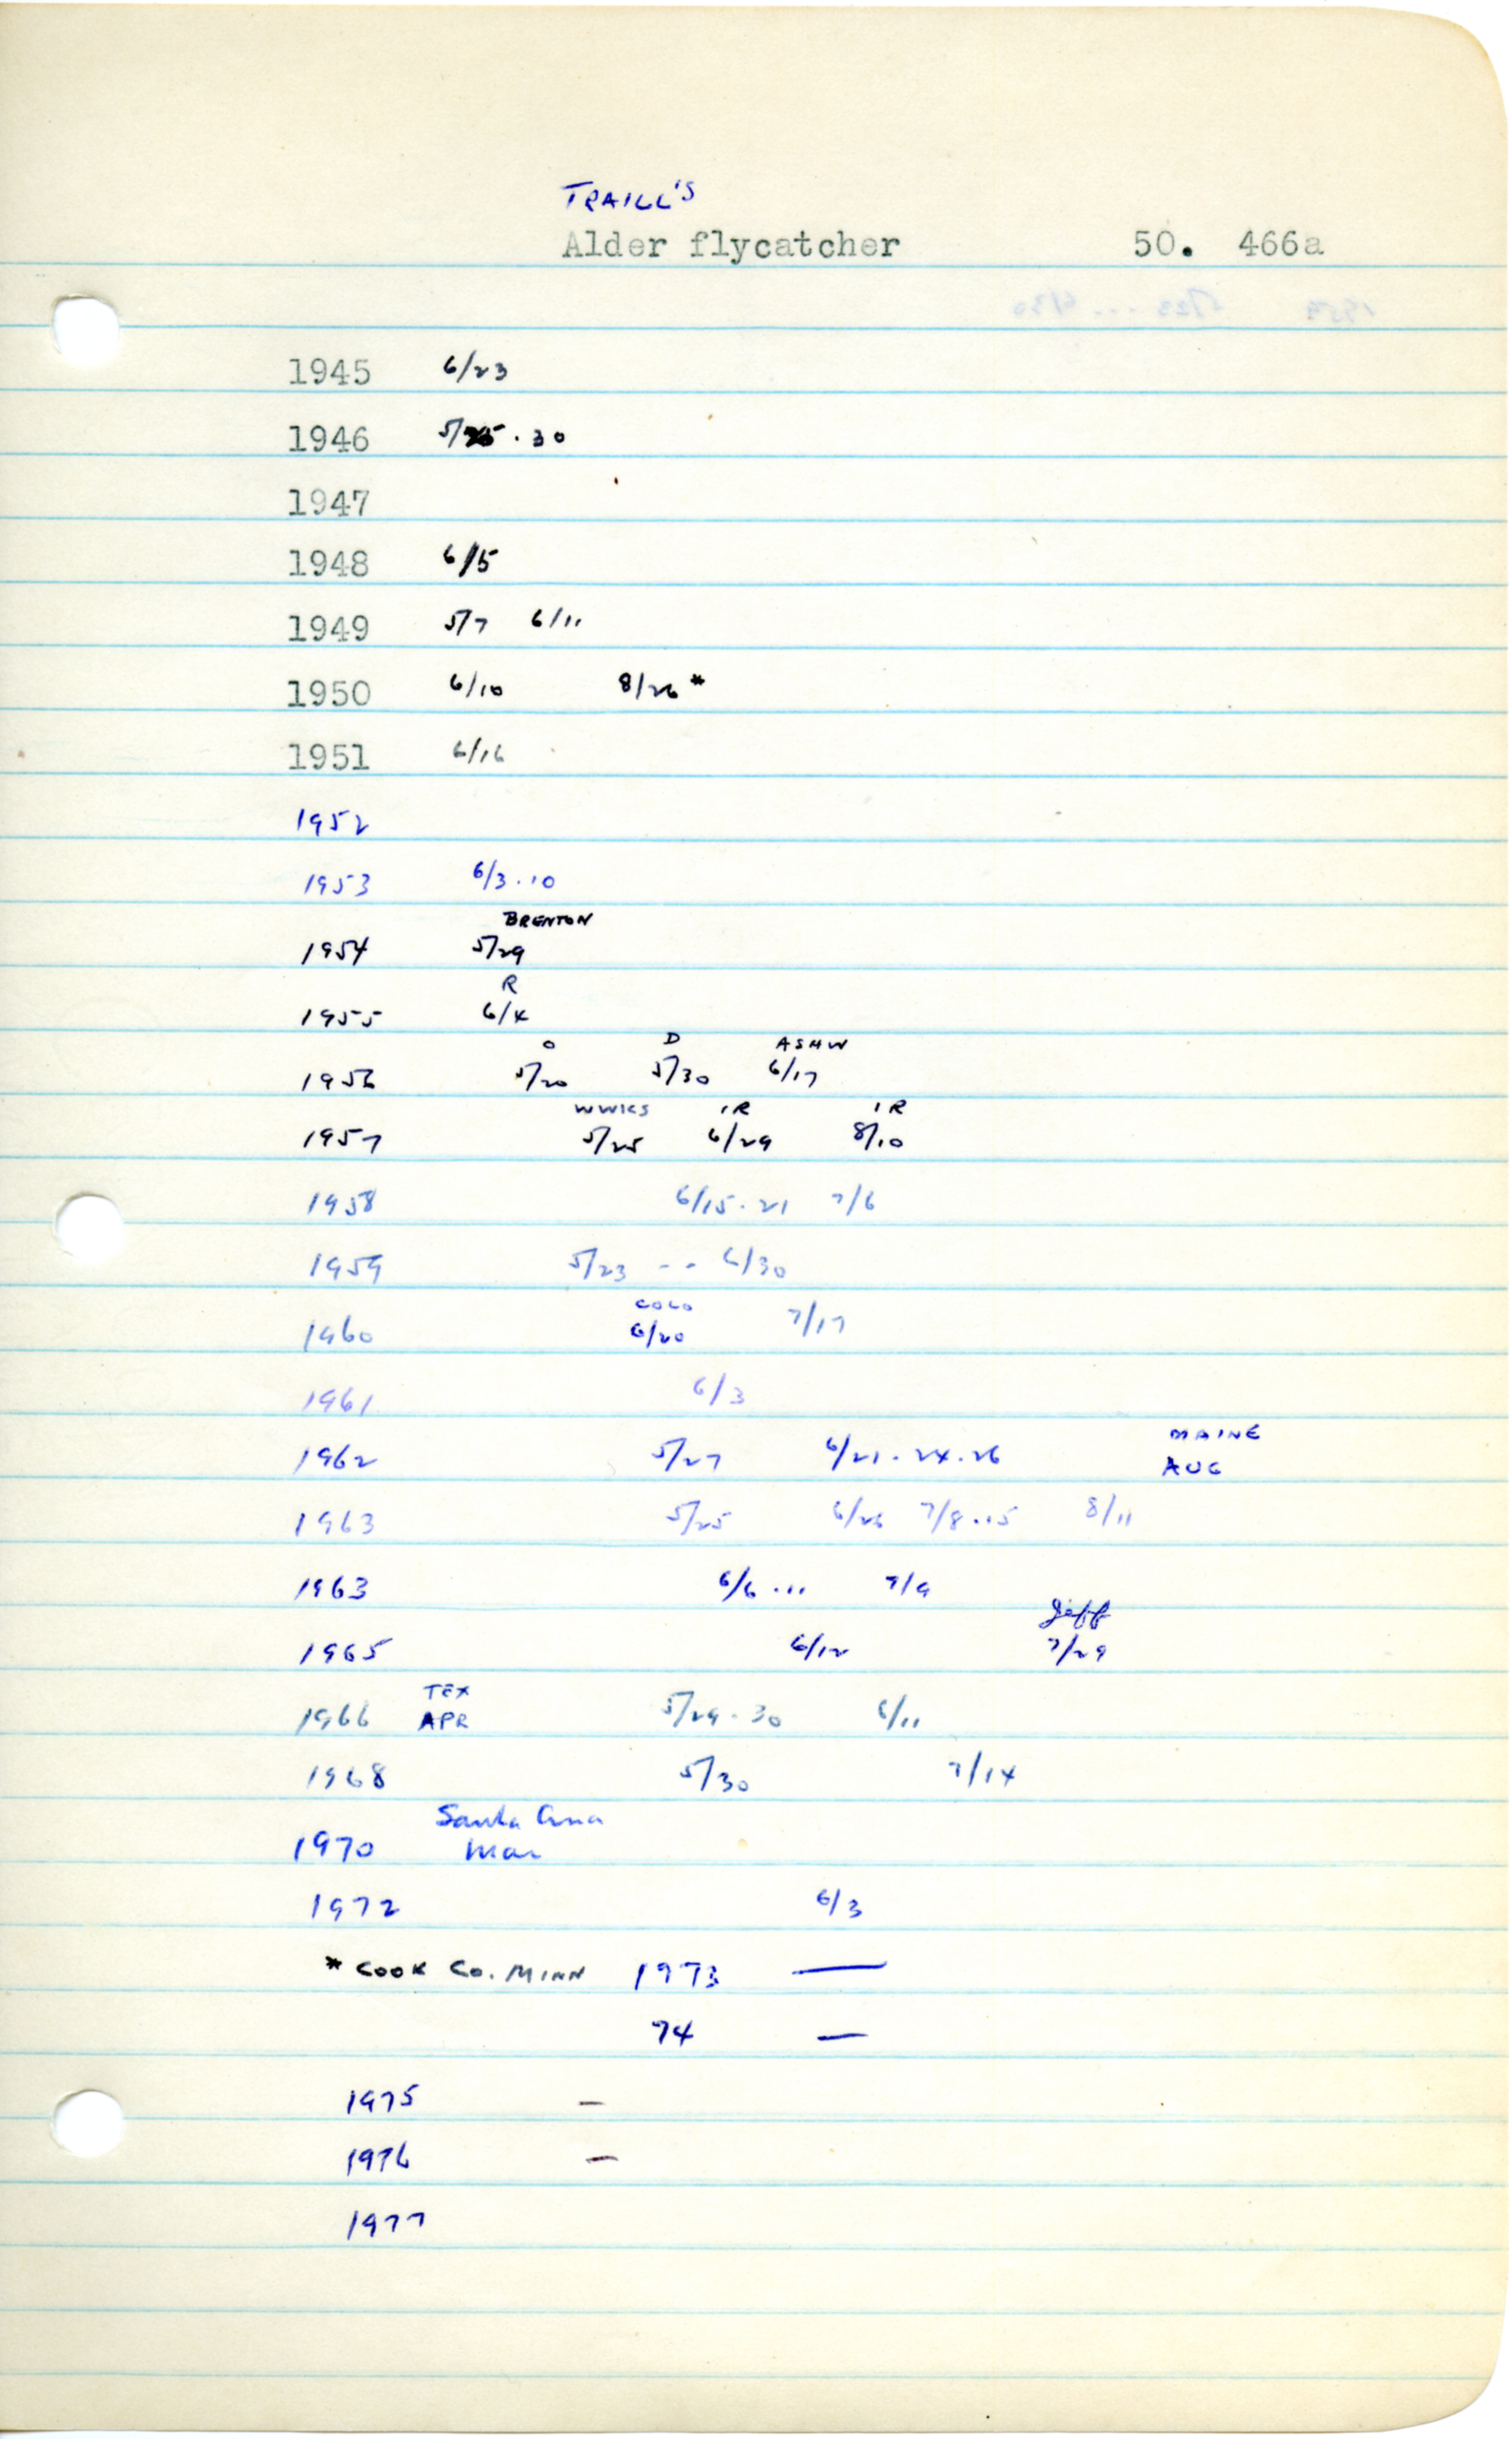 TRAILL'S
Alder flycatcher 50. 466a
1945 6/23
1946 5/25 . 30
1947
1948 6/5
1949 5/7 6/11
1950 6/10 8/26 *
1951 6/16
1952
1953 6/3 . 10
BRENTON
1954 5/29
R
1955 6/4
O D ASHW
1956 5/20 5/30 6/17
WWKS IR IR
1957 5/25 6/29 8/10
1958 6/15 . 21 7/6
1959 5/23 - - 6/30
COLO
1960 6/20 7/17
1961 6/3
MAINE
1962 5/27 6/21 . 24 . 26 AUG
1963 5/25 6/26 7/8 . 15 8/11
1963 6/6 . . 11 7/9
Jeff
1965 6/12 7/29
TEX
1966 APR 5/29 . 30 6/11
1968 5/30 7/14
Santa Ana
1970 Mar
1972 6/3
* COOK CO. MINN 1973 —
74 —
1975 —
1976 —
1977